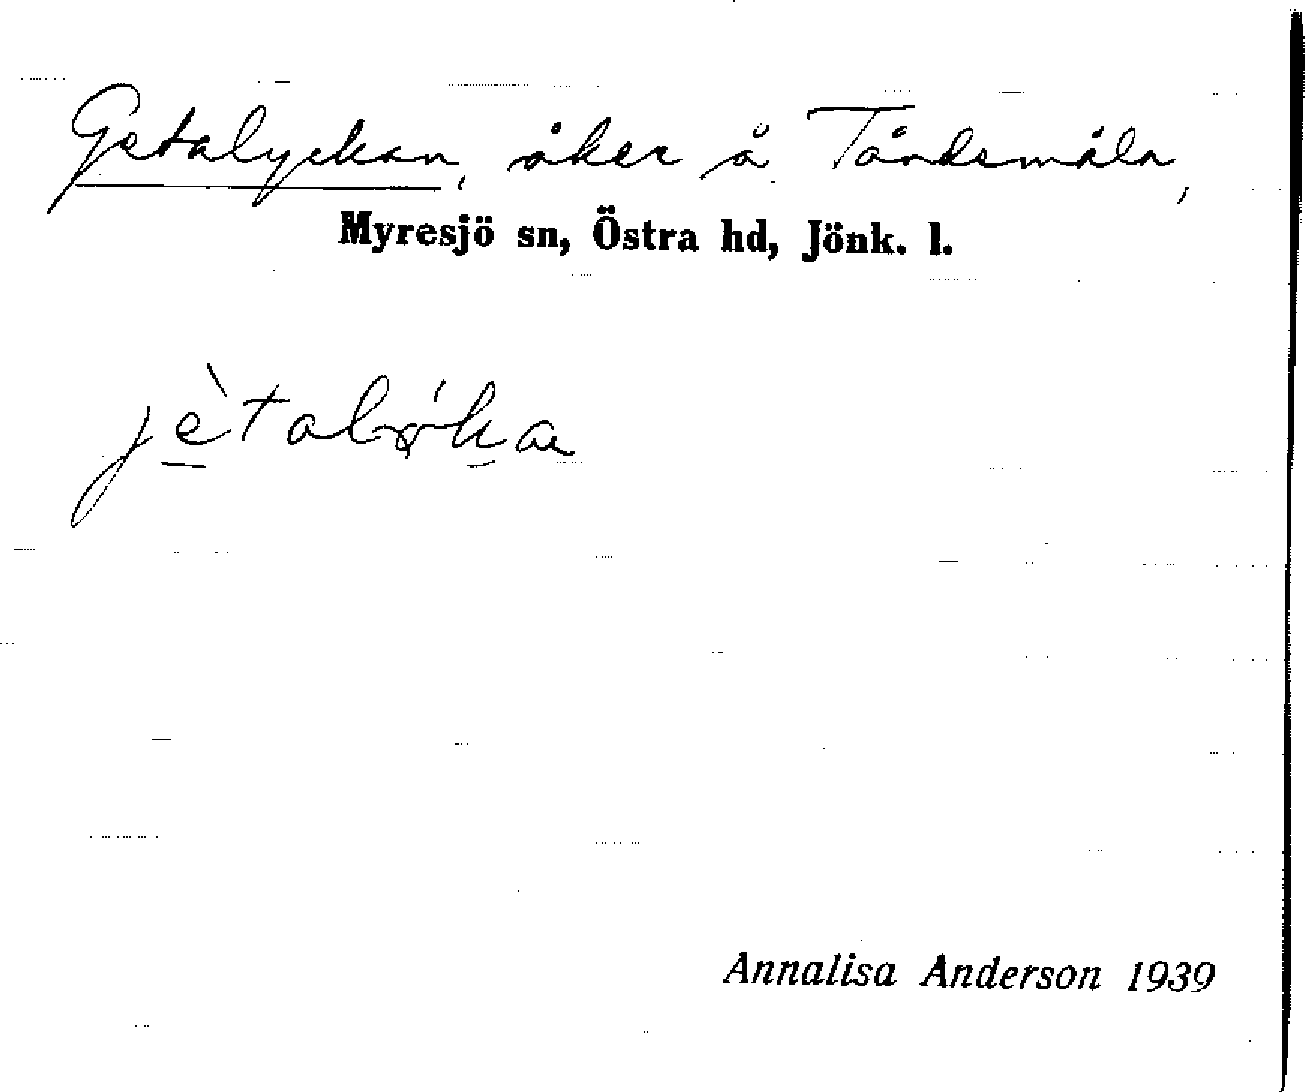 Getalyckan, åker å Tåndsmåla,
Myresjö sn, Östra hd, Jönk. l.
Annalisa Anderson 1939